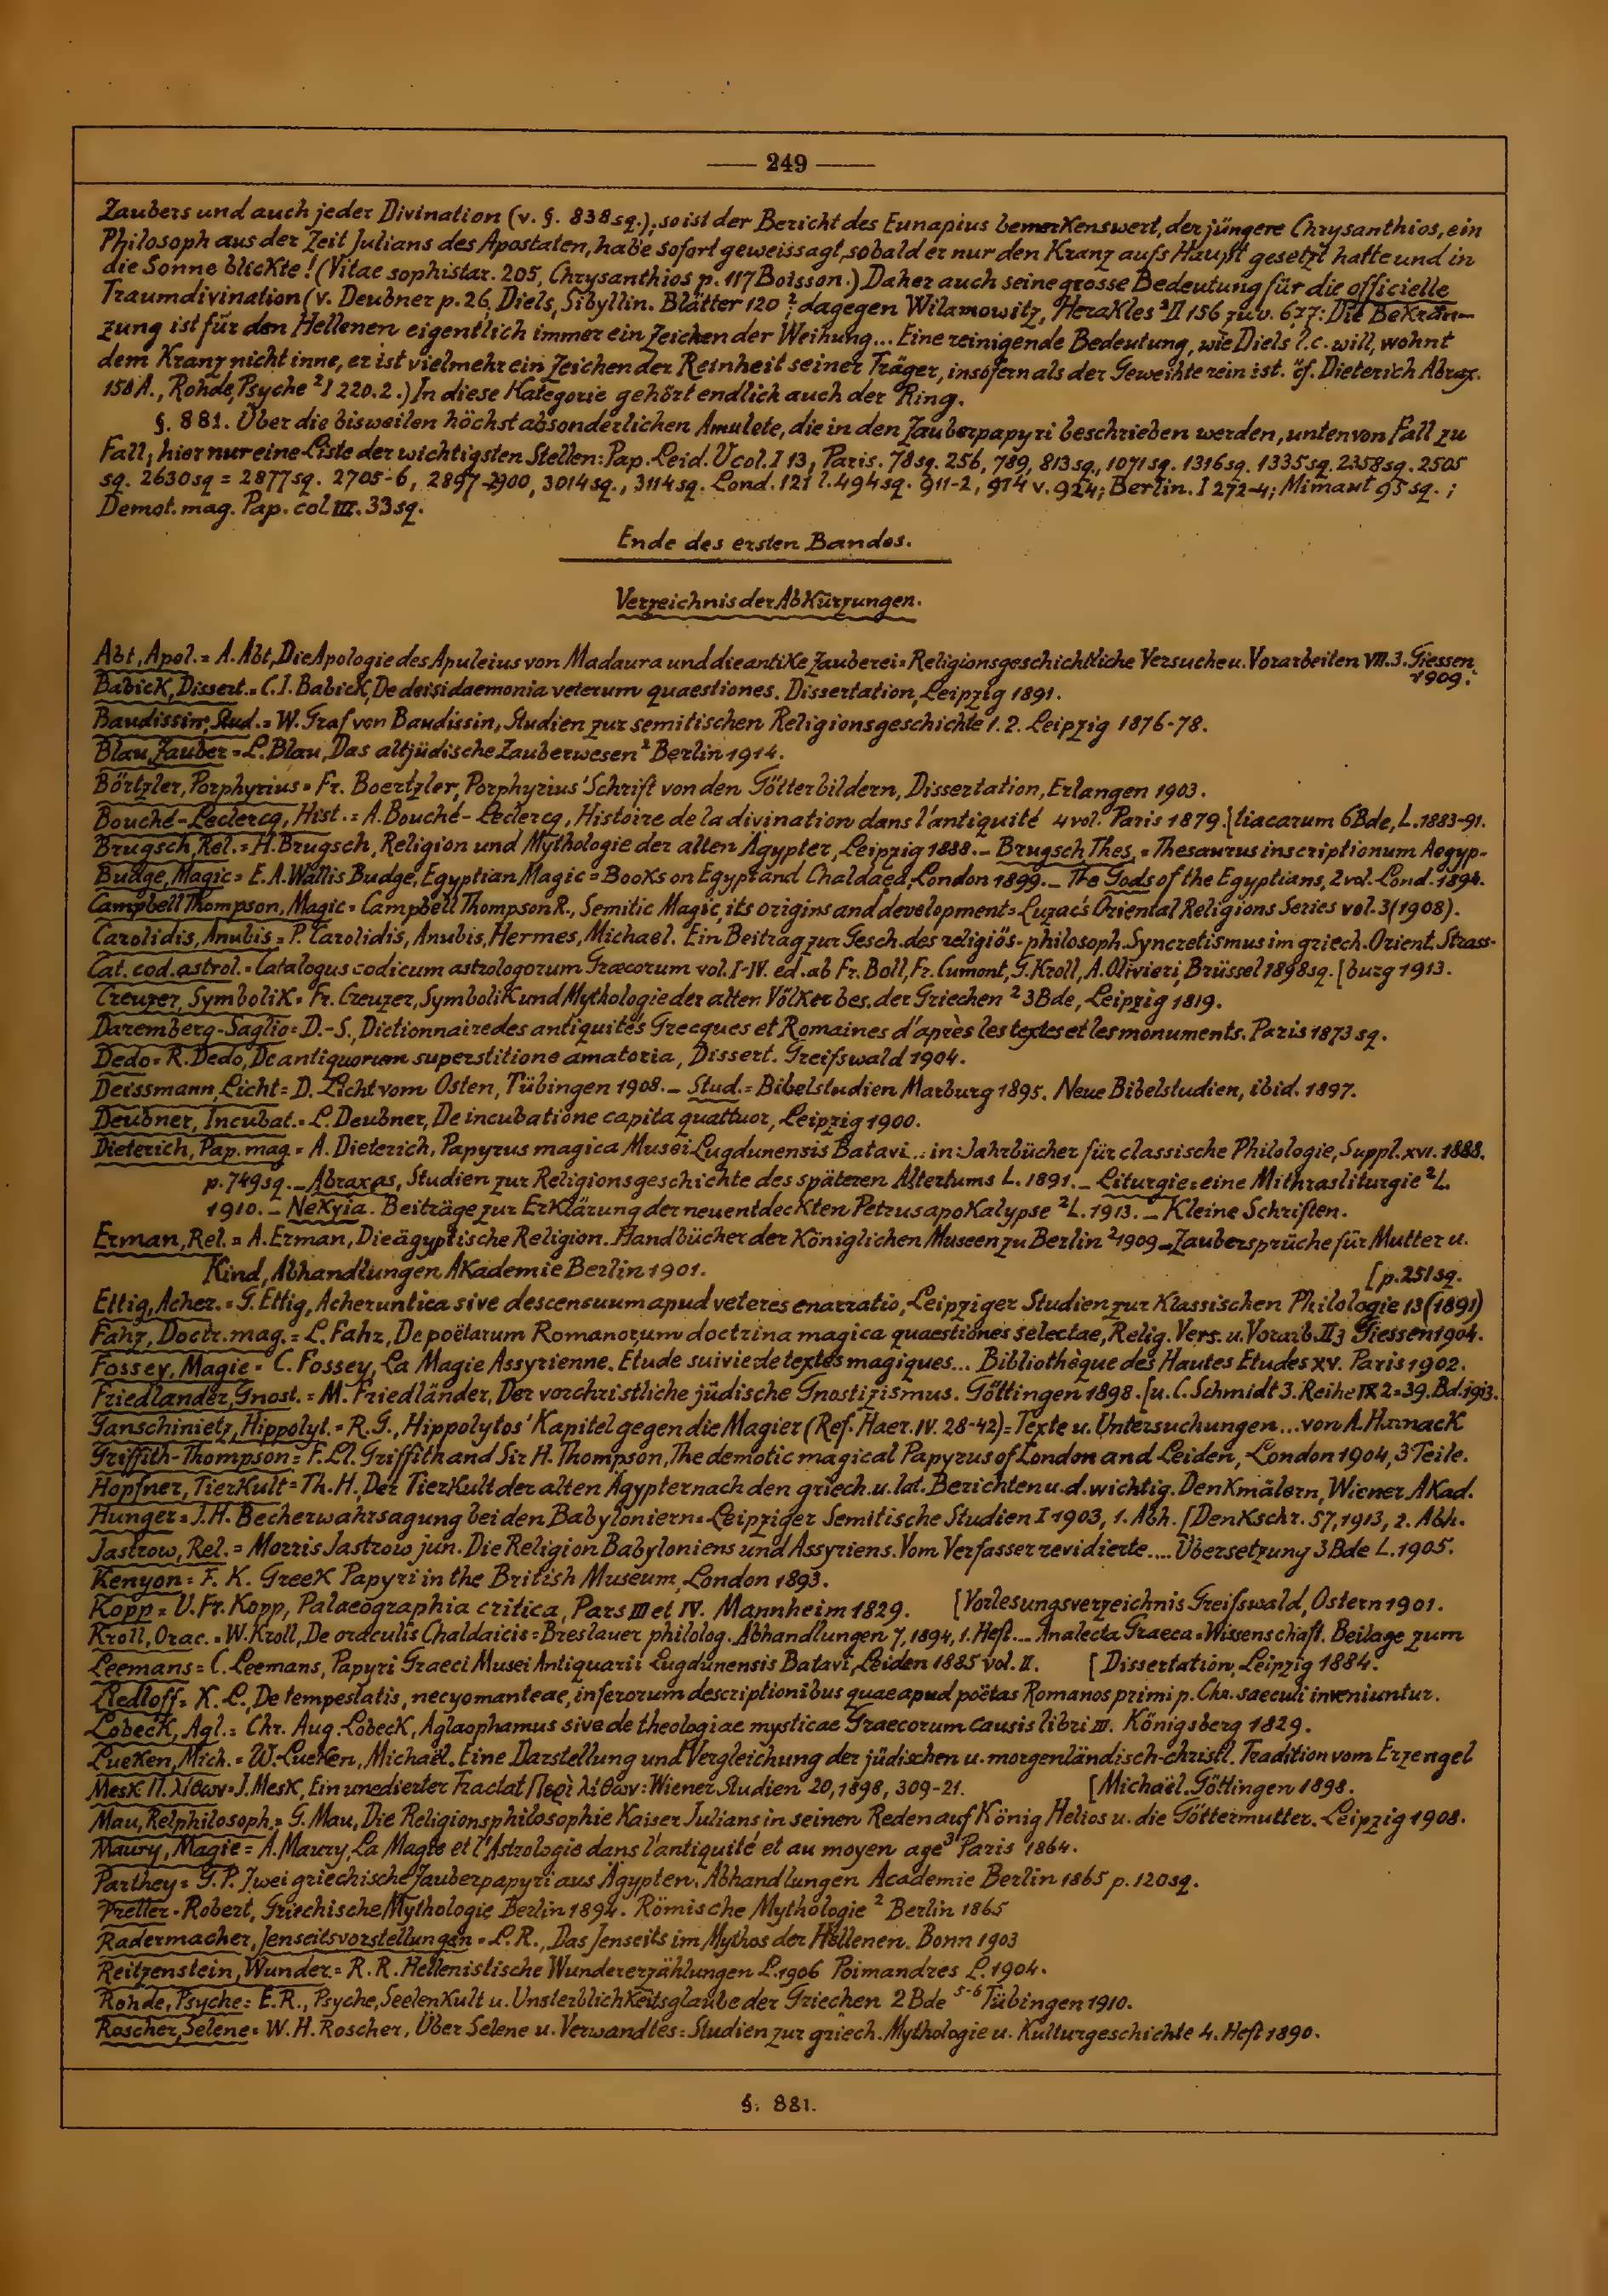 — 249 —
Zaubers und auch jeder Divination (v. §. 838sq.), so ist der Bericht des Eunapius bemerkenswert, der jüngere Chrysanthios, ein
Philosoph aus der Zeit Julians des Apostaten, habe sofort geweissagt, sobald er nur den Kranz aufs Haupt gesetzt hatte und in
die Sonne blickte! (Vitae sophistar. 205, Chrysanthios p. 117 Boisson.) Daher auch seine grosse Bedeutung für die officielle
Traumdivination (v. Deubner p. 26, Diels, Sibyllin. Blätter 120 ²; dagegen Wilamowitz, Herakles ²II 156 zu v. 677: Die Bekrän-
zung ist für den Hellenen eigentlich immer ein Zeichen der Weihung... Eine reinigende Bedeutung, wie Diels l.c. will, wohnt
dem Kranz nicht inne, er ist vielmehr ein Zeichen der Reinheit seiner Träger, insofern als der Geweihte rein ist. cf. Dieterich Abrax.
158 A., Rohde, Psyche ²I 220.2.) In diese Kategorie gehört endlich auch der Ring.
§. 881. Über die bisweilen höchst absonderlichen Amulete, die in den Zauberpapyri beschrieben werden, unten von Fall zu
Fall; hier nur eine Liste der wichtigsten Stellen: Pap. Leid. V col. I 13, Paris. 78sq. 256, 789, 813sq., 1071sq. 1316sq. 1335sq. 2358sq. 2505
sq. 2630sq = 2877sq. 2705-6, 2897-2900, 3014sq., 3114sq. Lond. 121 l. 494sq. 911-2, 914 v. 924; Berlin. I 272-4; Mimaut 95 sq. ;
Demot. mag. Pap. col III. 33sq.
Ende des ersten Bandes.
Verzeichnis der Abkürzungen.
Abt, Apol. = A. Abt, Die Apologie des Apuleius von Madaura und die antike Zauberei = Religionsgeschichtliche Versuche u. Vorarbeiten VII. 3. Giessen
1909.
Babick, Dissert. = C. I. Babick, De deisidaemonia veterum quaestiones. Dissertation, Leipzig 1891.
Baudissin, Stud. = W. Graf von Baudissin, Studien zur semitischen Religionsgeschichte 1. 2. Leipzig 1876-78.
Blau, Zauber = L. Blau, Das altjüdische Zauberwesen ² Berlin 1914.
Börtzler, Porphyrius = Fr. Boertzler, Porphyrius' Schrift von den Götterbildern, Dissertation, Erlangen 1903.
Bouché-Leclercq, Hist. = A. Bouché-Leclercq, Histoire de la divination dans l'antiquité 4 vol. Paris 1879. [tiacarum 6 Bde, L. 1883-91.
Brugsch, Rel. = H. Brugsch, Religion und Mythologie der alten Ägypter, Leipzig 1888. – Brugsch Thes. = Thesaurus inscriptionum Aegyp-
Budge, Magic = E. A. Wallis Budge, Egyptian Magic = Books on Egypt and Chaldaea, London 1899. – The Gods of the Egyptians, 2 vol. Lond. 1894.
Campbell Thompson, Magic = Campbell Thompson R., Semitic Magic, its origins and development = Luzac's Oriental Religions Series vol. 3 (1908).
Carolidis, Anubis = P. Carolidis, Anubis, Hermes, Michael. Ein Beitrag zur Gesch. des religiös-philosoph. Syncretismus im griech. Orient. Strass-
Cat. cod. astrol. = Catalogus codicum astrologorum Graecorum vol. I-IV. ed. ab Fr. Boll, Fr. Cumont, G. Kroll, A. Olivieri, Brüssel 1898sq. [burg 1913.
Creuzer, Symbolik = Fr. Creuzer, Symbolik und Mythologie der alten Völker bes. der Griechen ² 3 Bde, Leipzig 1819.
Daremberg-Saglio = D.-S., Dictionnaire des antiquités Grecques et Romaines d'après les textes et les monuments. Paris 1873 sq.
Dedo = R. Dedo, De antiquorum superstitione amatoria, Dissert. Greifswald 1904.
Deissmann, Licht = D. Licht vom Osten, Tübingen 1908. – Stud. = Bibelstudien Marburg 1895. Neue Bibelstudien, ibid. 1897.
Deubner, Incubat. = L. Deubner, De incubatione capita quattuor, Leipzig 1900.
Dieterich, Pap. mag. = A. Dieterich, Papyrus magica Musei Lugdunensis Batavi... in: Jahrbücher für classische Philologie, Suppl. XVI. 1888.
p. 749sq. – Abraxas, Studien zur Religionsgeschichte des späteren Altertums L. 1891. – Liturgie = eine Mithrasliturgie ²L.
1910. – Nekyia. Beiträge zur Erklärung der neuentdeckten Petrusapokalypse ²L. 1913. – Kleine Schriften.
Erman, Rel. = A. Erman, Die ägyptische Religion. Handbücher der Königlichen Museen zu Berlin ²1909 – Zaubersprüche für Mutter u.
Kind, Abhandlungen Akademie Berlin 1901. [p. 251sq.
Ettig, Acher. = G. Ettig, Acheruntica sive descensuum apud veteres enarratio, Leipziger Studien zur Klassischen Philologie 13 (1891)
Fahz, Doctr. mag. = L. Fahz, De poëtarum Romanorum doctrina magica quaestiones selectae, Relig. Vers. u. Vorarb. II 3 Giessen 1904.
Fossey, Magie = C. Fossey, La Magie Assyrienne. Etude suivie de textes magiques... Bibliothèque des Hautes Etudes XV. Paris 1902.
Friedlander, Gnost. = M. Friedländer, Der vorchristliche jüdische Gnostizismus. Göttingen 1898. [u. C. Schmidt 3. Reihe IX 2 = 39. Bd. 1913.
Ganschinietz, Hippolyt. = R. G., Hippolytos' Kapitel gegen die Magier (Ref. Haer. IV. 28-42) = Texte u. Untersuchungen ... von A. Harnack
Griffith-Thompson = F. Ll. Griffith and Sir H. Thompson, The demotic magical Papyrus of London and Leiden, London 1904, 3 Teile.
Hopfner, Tierkult = Th. H., Der Tierkult der alten Ägypter nach den griech. u. lat. Berichten u. d. wichtig. Denkmälern, Wiener Akad.
Hunger = J. H. Becherwahrsagung bei den Babyloniern = Leipziger Semitische Studien I 1903, 1. Abh. [Denkschr. 57, 1913, 2. Abh.
Jastrow, Rel. = Morris Jastrow jun. Die Religion Babyloniens und Assyriens. Vom Verfasser revidierte .... Übersetzung 3 Bde L. 1905.
Kenyon = F. K. Greek Papyri in the British Museum, London 1893.
Kopp = U. Fr. Kopp, Palaeographia critica, Pars III et IV. Mannheim 1829. [Vorlesungsverzeichnis Greifswald, Ostern 1901.
Kroll, Orac. = W. Kroll, De oraculis Chaldaicis = Breslauer philolog. Abhandlungen 7, 1894, 1. Heft. – Analecta Graeca = Wissenschaft. Beilage zum
Leemans = C. Leemans, Papyri Graeci Musei Antiquarii Lugdunensis Batavi, Leiden 1885 vol. II. [Dissertation, Leipzig 1884.
Liedloff = K. L., De tempestatis, necyomanteae, inferorum descriptionibus quae apud poëtas Romanos primi p. Chr. saeculi inveniuntur.
Lobeck, Agl. = Chr. Aug. Lobeck, Aglaophamus sive de theologiae mysticae Graecorum causis libri III. Königsberg 1829.
Lueken, Mich. = W. Lueken, Michaël. Eine Darstellung und Vergleichung der jüdischen u. morgenländisch-christl. Tradition vom Erzengel
Mesk Π. λίθων = J. Mesk, Ein unedierter Tractat Περὶ λίθων: Wiener Studien 20, 1898, 309-21. [Michaël. Göttingen 1898.
Mau, Relphilosoph. = G. Mau, Die Religionsphilosophie Kaiser Julians in seinen Reden auf König Helios u. die Göttermutter. Leipzig 1908.
Maury, Magie = A. Maury, La Magie et l'Astrologie dans l'antiquité et au moyen age ³ Paris 1864.
Parthey = G. P. Zwei griechische Zauberpapyri aus Ägypten. Abhandlungen Academie Berlin 1865 p. 120sq.
Preller-Robert, Griechische Mythologie Berlin 1894. Römische Mythologie ² Berlin 1865
Radermacher, Jenseitsvorstellungen = L. R., Das Jenseits im Mythos der Hellenen. Bonn 1903
Reitzenstein, Wunder. = R. R. Hellenistische Wundererzählungen L. 1906 Poimandres L. 1904.
Rohde, Psyche = E. R., Psyche, Seelenkult u. Unsterblichkeitsglaube der Griechen 2 Bde ⁵⁻⁶ Tübingen 1910.
Roscher, Selene = W. H. Roscher, Über Selene u. Verwandtes = Studien zur griech. Mythologie u. Kulturgeschichte 4. Heft 1890.
§. 881.